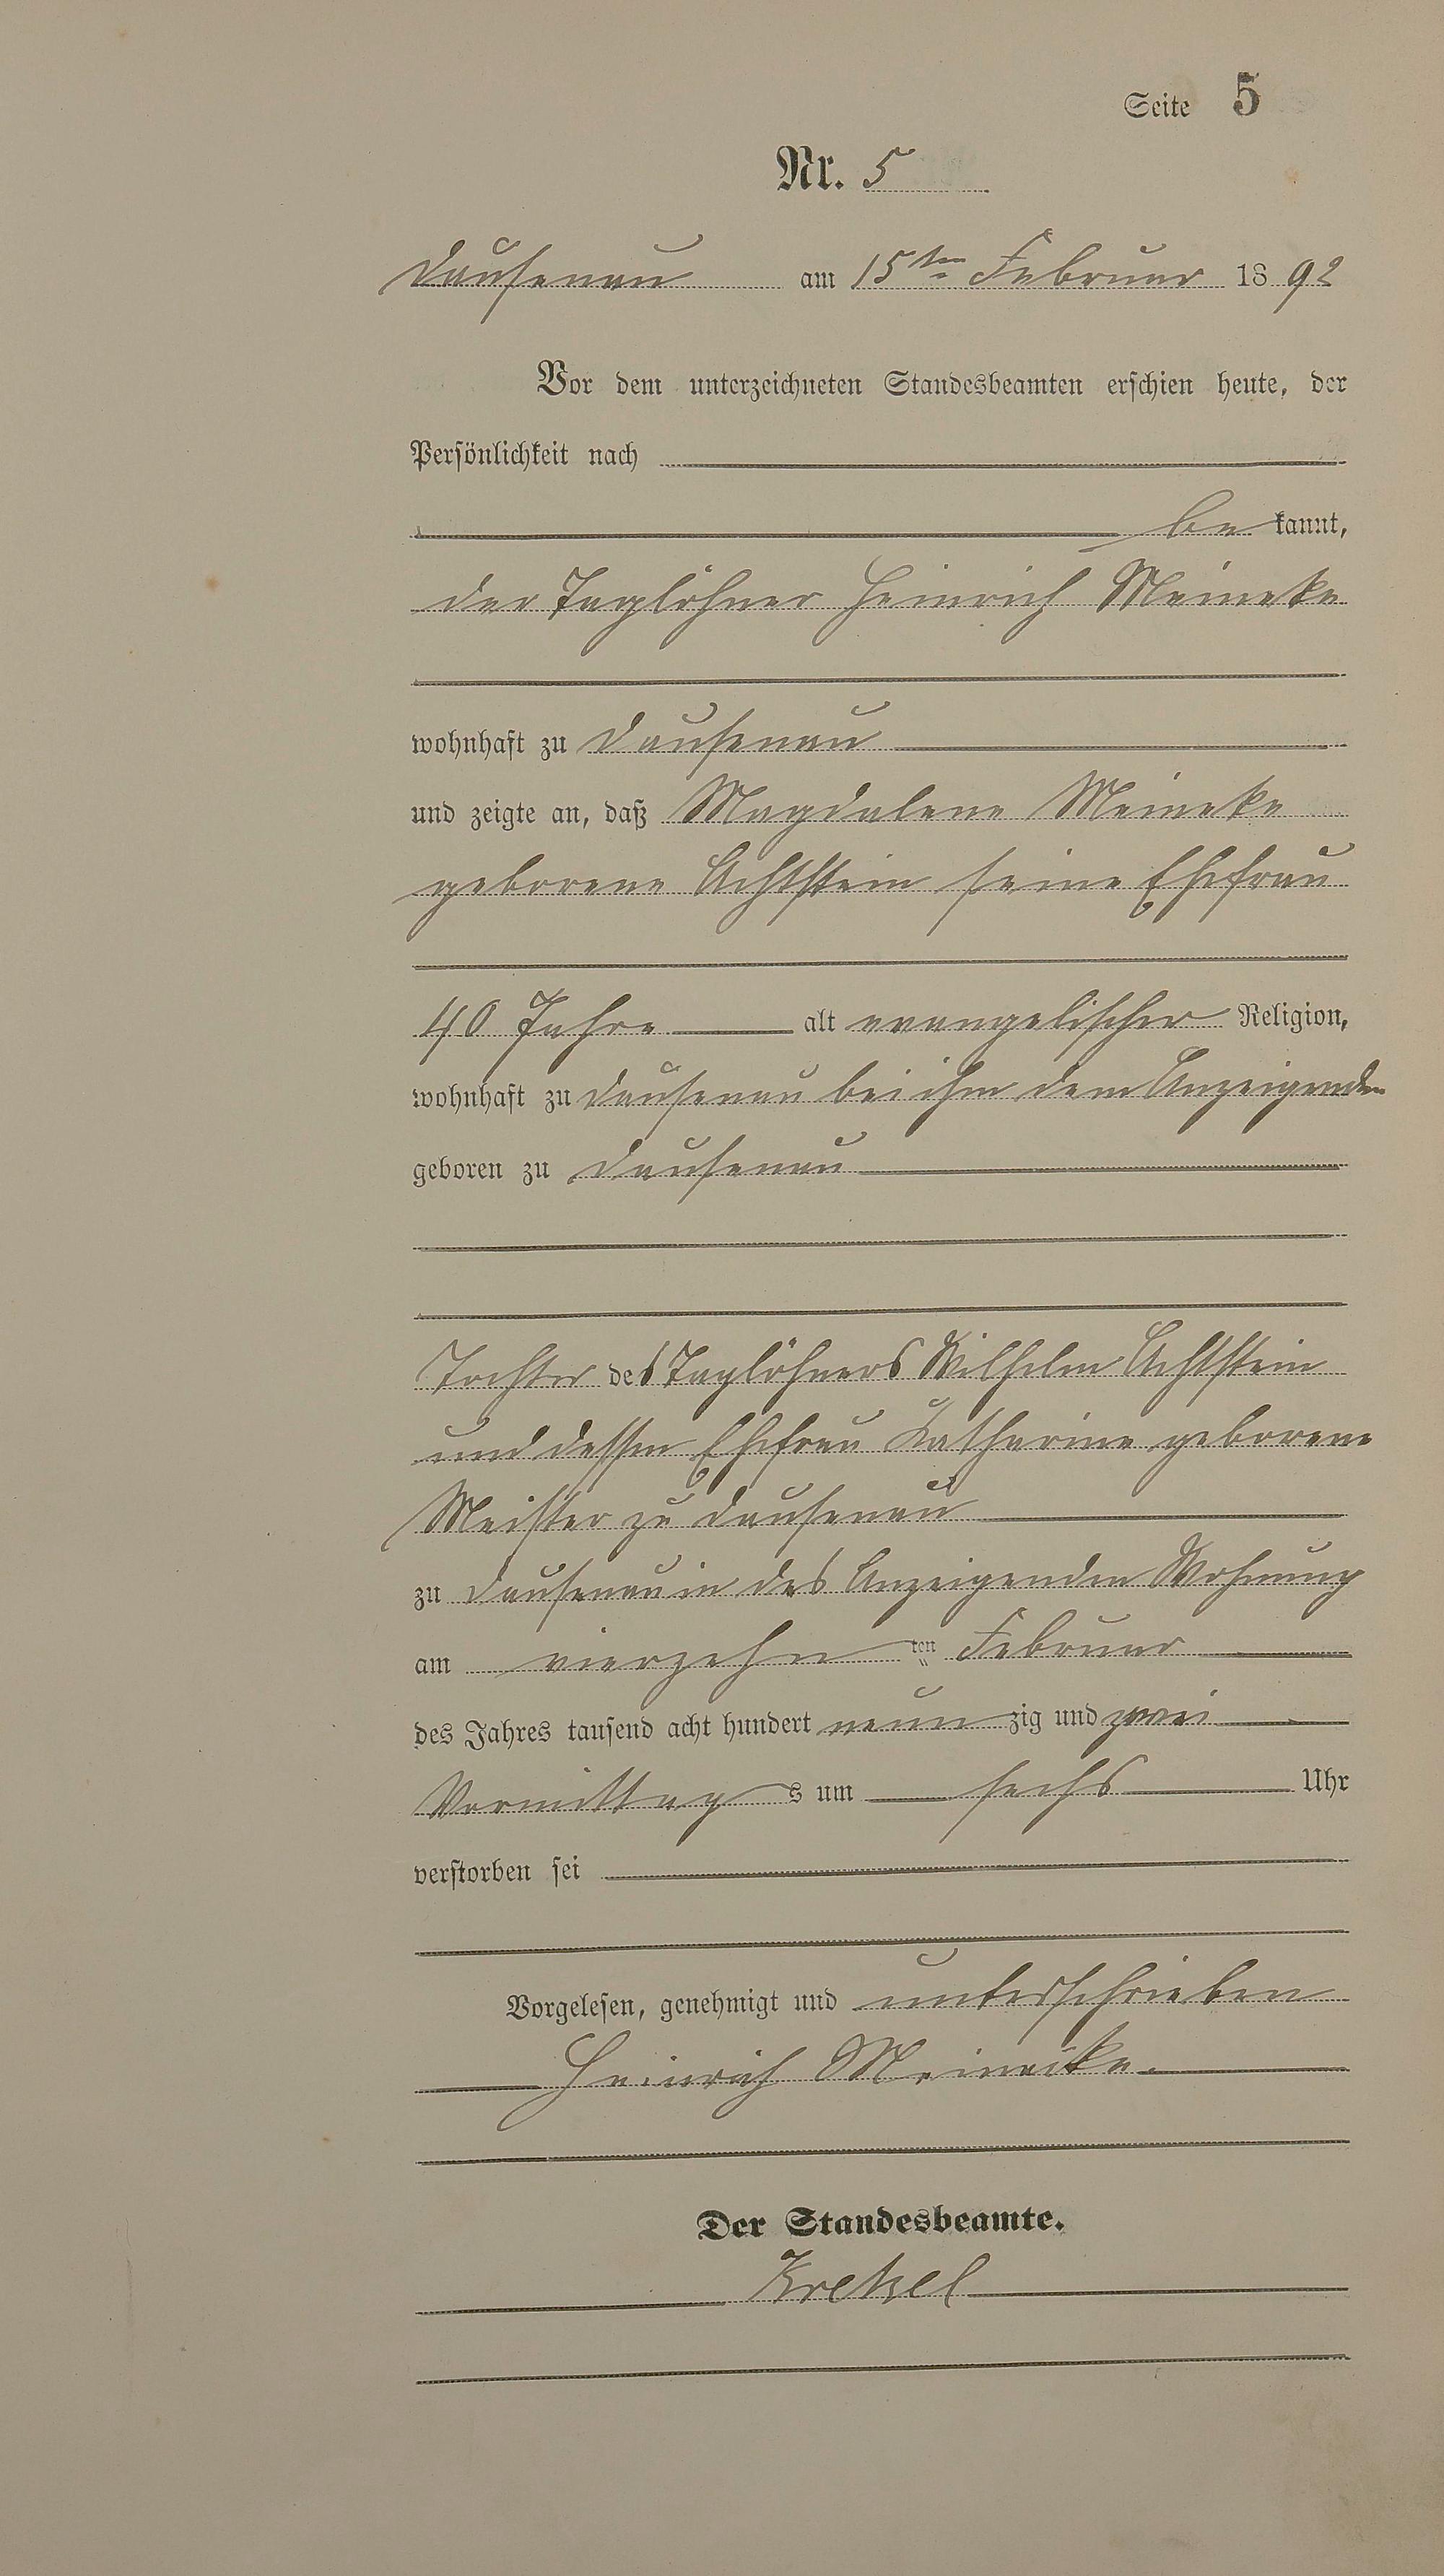 Seite 5
Nr. 5
Dausenau am 15ten Februar 1892
Vor dem unterzeichneten Standesbeamten erschien heute, der
Persönlichkeit nach
be kannt,
der Taglöhner Heinrich Meineke
wohnhaft zu Dausenau
und zeigte an, daß Magdalena Meineke
geborene Achtstein seine Ehefrau
40 Jahre alt evangelischer Religion,
wohnhaft zu Dausenau bei ihm dem Anzeigenden
geboren zu Dausenau
Tochter des Taglöhners Wilhelm Achtstein
und dessen Ehefrau Katharine geborene
Meister zu Dausenau
zu Dausenau in des Anzeigenden Wohnung
am vierzehn ten Februar
des Jahres tausend acht hundert neun zig und zwei
Vormittag s um sechs Uhr
verstorben sei
Vorgelesen, genehmigt und unterschrieben
Heinrich Meinecke.
Der Standesbeamte.